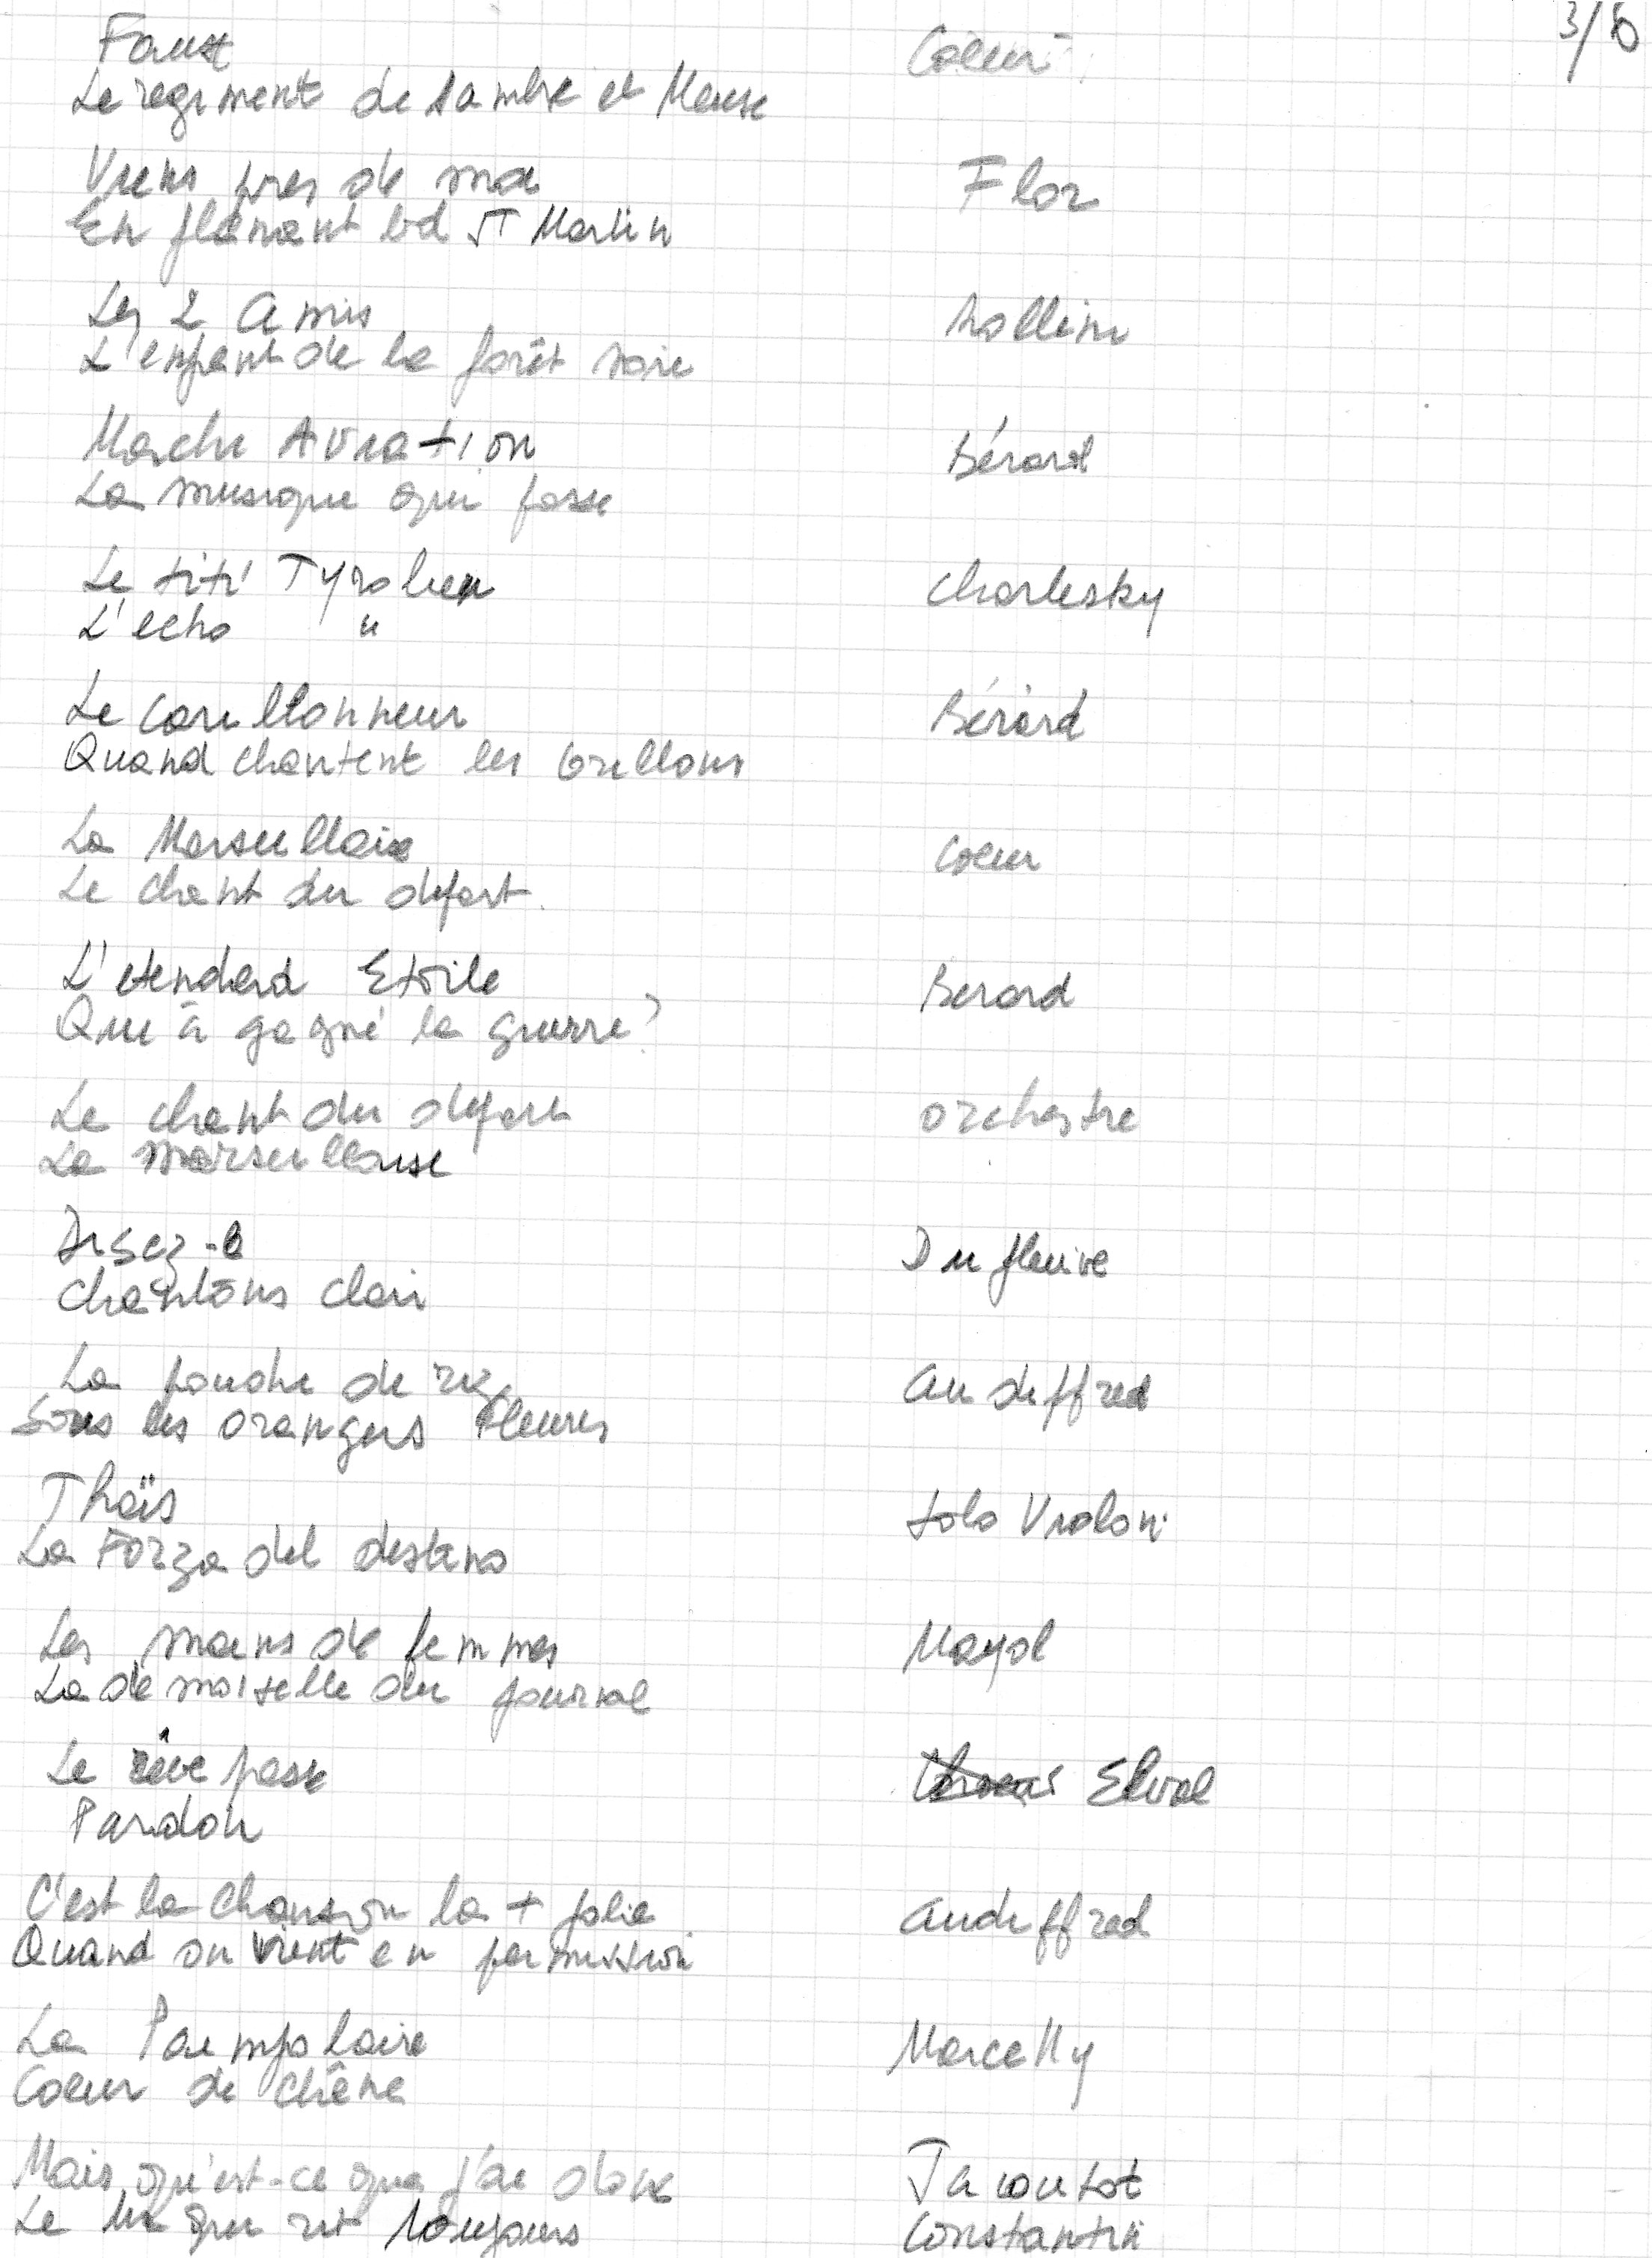 3/8
Faust Coeur
Le regiment de Sambre et Meuse
Viens pres de moi Flor
En flânant bd ST Martin
Les 2 Amis Rollini
L'enfant de la forêt noire
Marche Aviation Bérard
La musique qui passe
Le titi Tyrolien Charlesky
L'echo "
Le carillonneur Bérard
Quand chantent les Grillons
La Marseillaise Coeur
Le chant du depart.
L'etendard Etoile Berard
Qui à gagné la guerre?
Le chant du depart orchestre
La marseillaise
Chantons clair Dufleuve
La poudre de riz Audiffred
Sous les orangers fleuris
Thaïs Solo Violon
La Forza del destino
Les mains de femmes Mayol
La demoiselle du journal
Le rêve passe Elval
Pardon
C'est la Chanson la + jolie Audiffred
Quand on vient en permission
La Paimpolaise Marcelly
Coeur de chêne
Mais qu'est-ce que j'ai donc Jacoutot
Le qui rit toujours Constantin